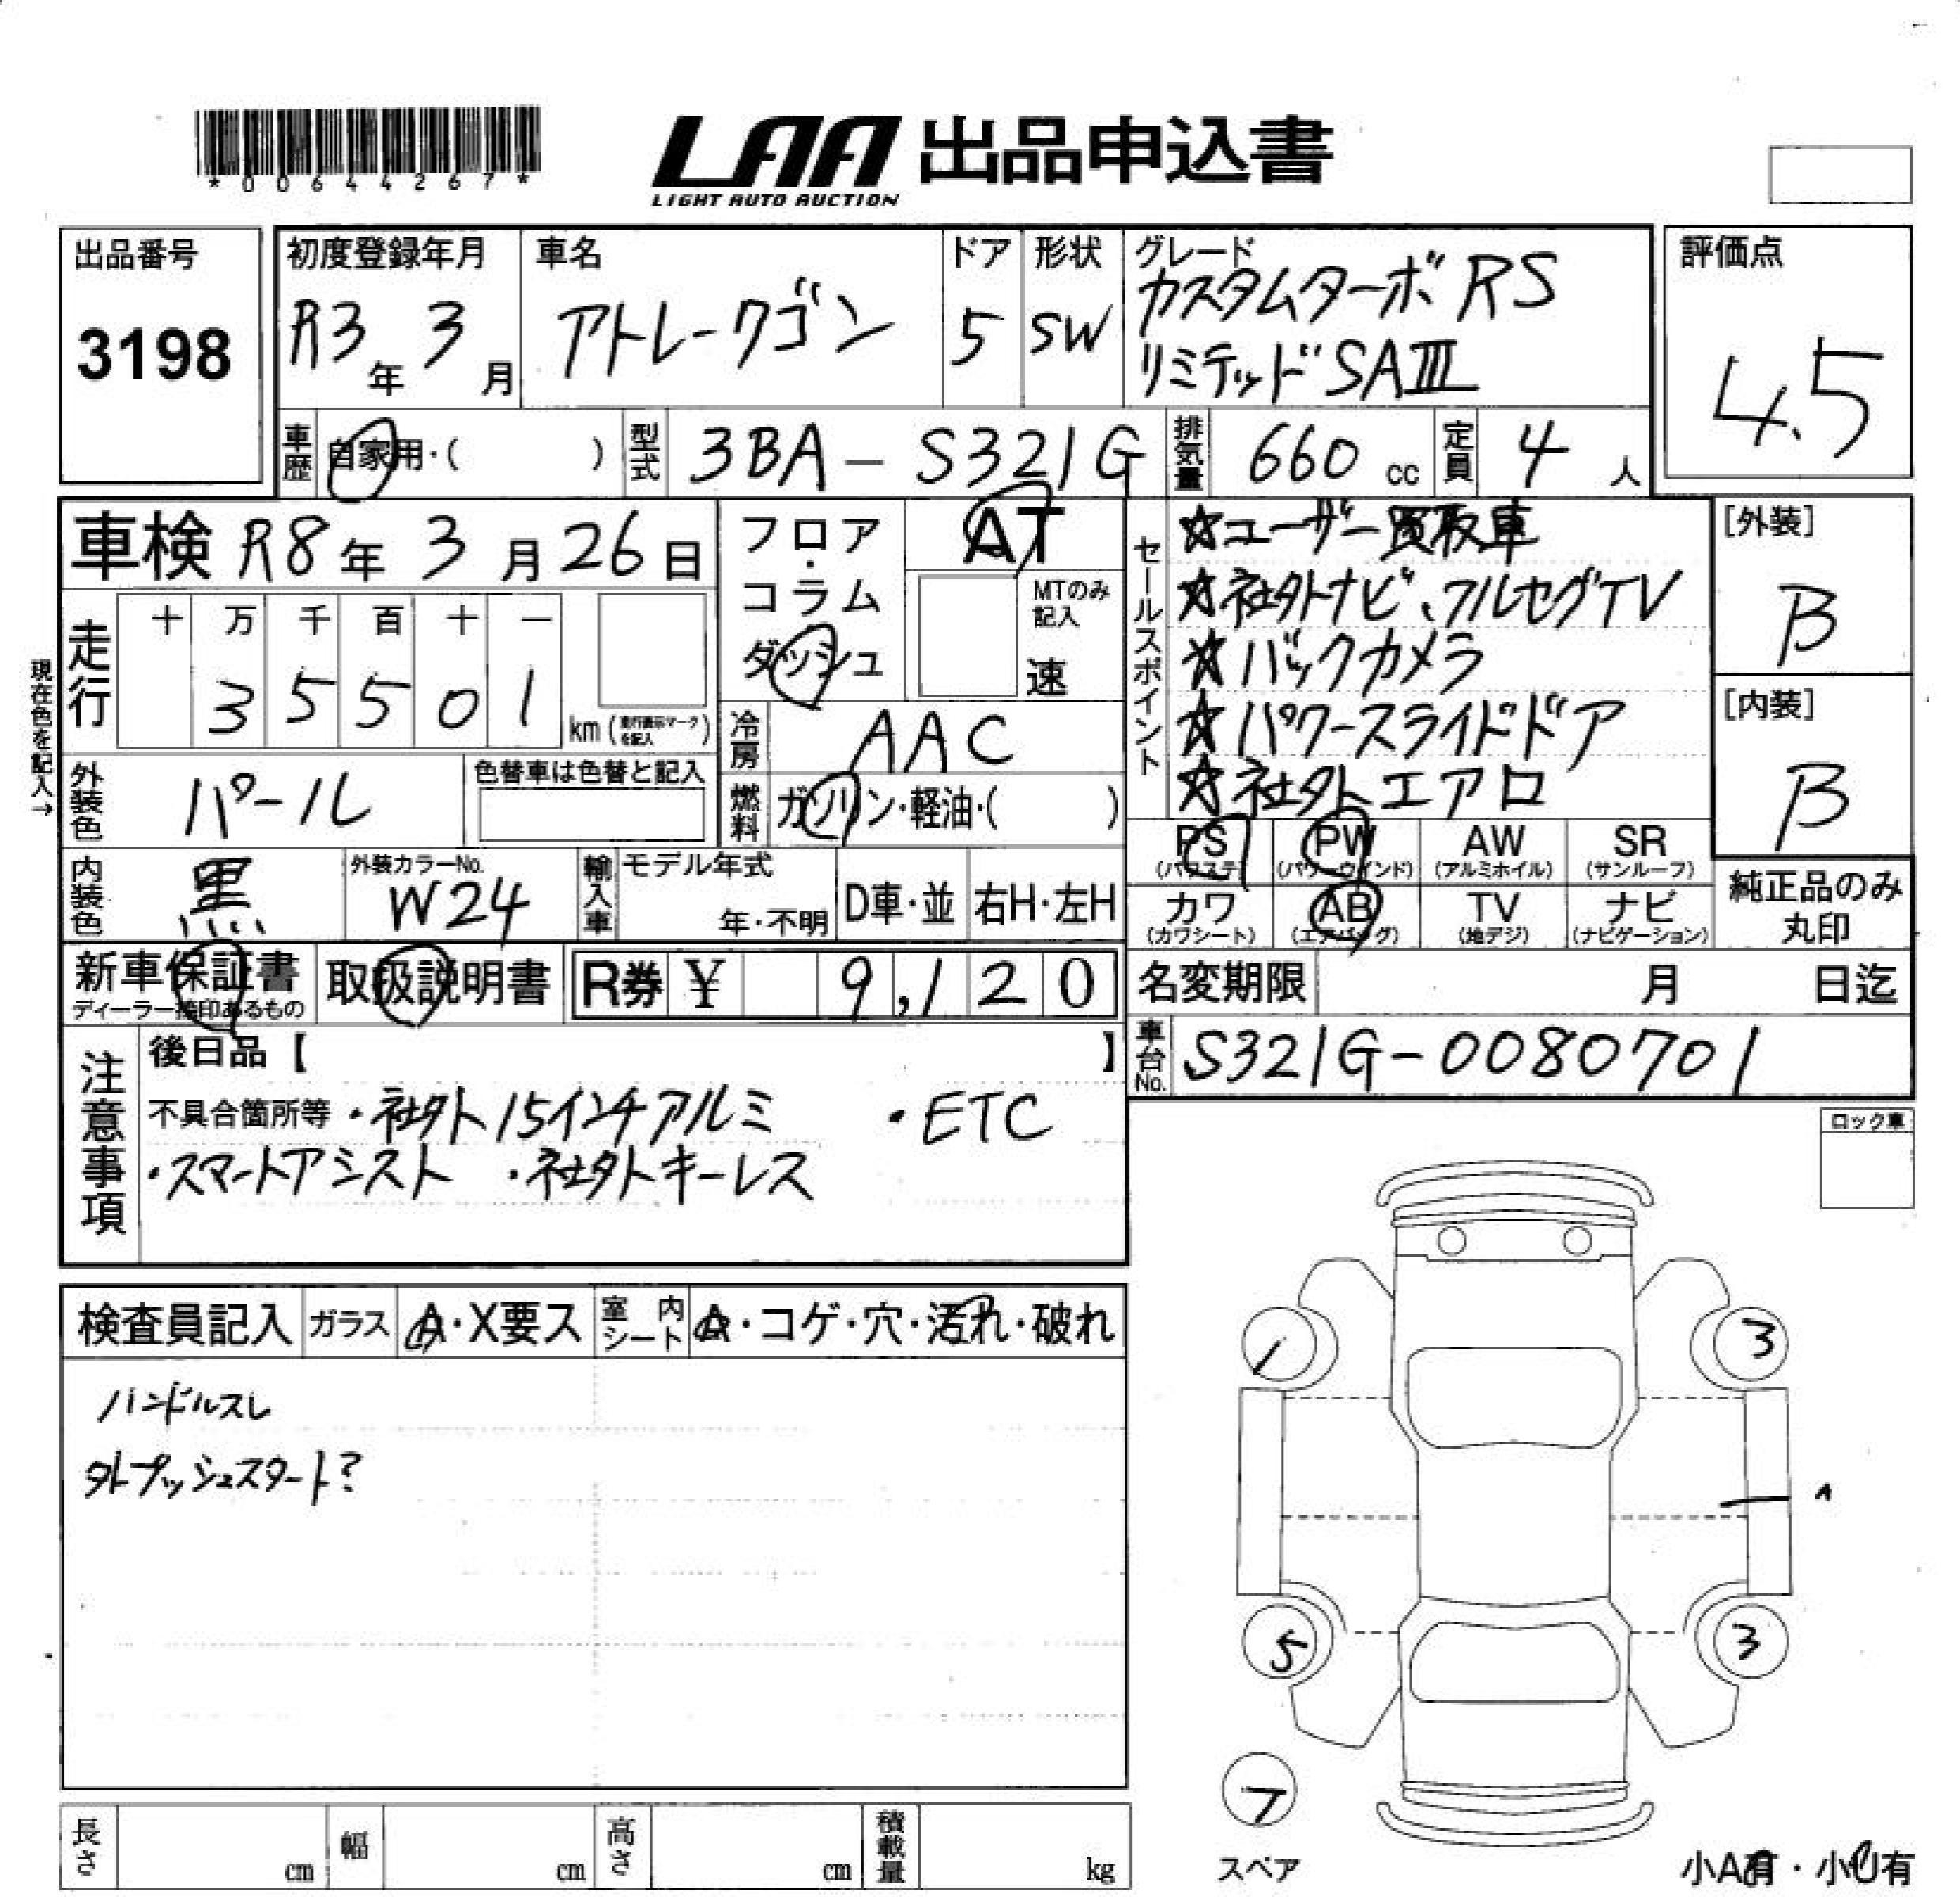 *00644267*
LAA 出品申込書
LIGHT AUTO AUCTION
出品番号
3198
初度登録年月
R3年 3月
車名
アトレーワゴン
ドア
5
形状
SW
グレード
カスタムターボRS
リミテッドSAⅢ
評価点
4.5
車歴 自家用・( )
型式 3BA-S321G
排気量 660 cc
定員 4 人
車検 R8年 3月 26日
現在色を記入→
走行
十 万 千 百 十 一
3 5 5 0 1
km (走行表示マークを記入)
フロア・コラム
ダッシュ
AT
MTのみ記入
速
冷房 AAC
燃料 ガソリン・軽油・( )
外装色 パール
色替車は色替と記入
内装色 黒
外装カラーNo.
W24
輸入車
モデル年式
年・不明
D車・並
右H・左H
セールスポイント
☆ユーザー買取車
☆社外ナビ、フルセグTV
☆バックカメラ
☆パワースライドドア
☆社外エアロ
[外装]
B
[内装]
B
PS
(パワステ)
PW
(パワーウインド)
AW
(アルミホイル)
SR
(サンルーフ)
カワ
(カワシート)
AB
(エアバッグ)
TV
(地デジ)
ナビ
(ナビゲーション)
純正品のみ
丸印
新車保証書
ディーラー捺印あるもの
取扱説明書
R券 ¥ 9,120
名変期限 月 日迄
車台No. S321G-0080701
注意事項
後日品【 】
不具合箇所等 ・社外15インチアルミ ・ETC
・スマートアシスト ・社外キーレス
ロック車
検査員記入
ガラス A・X要ス
室内シート A・コゲ・穴・汚れ・破れ
ハンドルスレ
外プッシュスタート?
1
3
A
5
3
7
スペア
小A有・小U有
長さ cm
幅 cm
高さ cm
積載量 kg